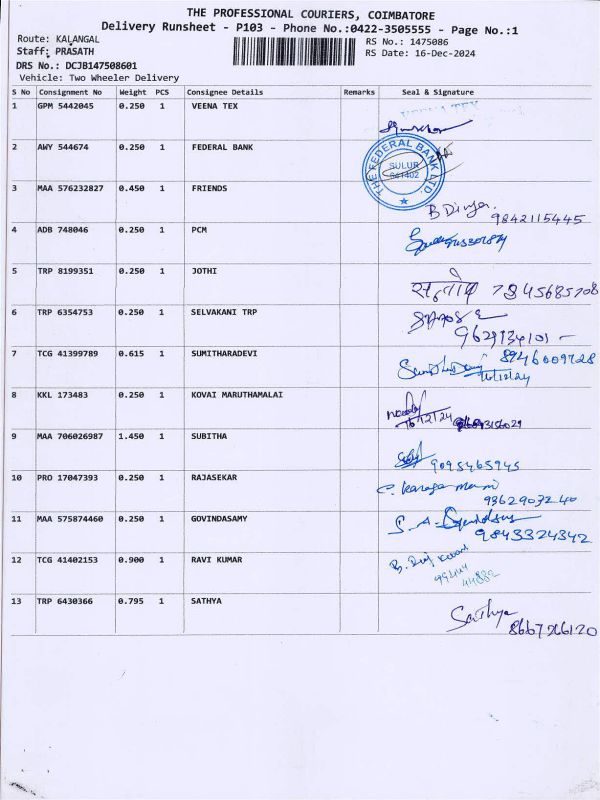 THE PROFESSIONAL COURIERS, COIMBATORE
Delivery Runsheet - P103 - Phone No.:0422-3505555 - Page No.:1
Route: KALANGAL
RS No.: 1475086
Staff: PRASATH
RS Date: 16-Dec-2024
DRS No.: DCJB147508601
Vehicle: Two Wheeler Delivery
S No Consignment No Weight PCS Consignee Details Remarks Seal & Signature
1 GPM 5442045 0.250 1 VEENA TEX
VEENA TEX
2 AWY 544674 0.250 1 FEDERAL BANK
THE FEDERAL BANK LTD.
SULUR
641402
3 MAA 576232827 0.450 1 FRIENDS
B Divya.
9842115445
4 ADB 748046 0.250 1 PCM
5 TRP 8199351 0.250 1 JOTHI
7845685708
6 TRP 6354753 0.250 1 SELVAKANI TRP
9629134101
7 TCG 41399789 0.615 1 SUMITHARADEVI
8946009728
16/12/24
8 KKL 173483 0.250 1 KOVAI MARUTHAMALAI
16/12/24
9 MAA 706026987 1.450 1 SUBITHA
9095465945
10 PRO 17047393 0.250 1 RAJASEKAR
9362907240
11 MAA 575874460 0.250 1 GOVINDSAMY
9843324342
12 TCG 41402153 0.900 1 RAVI KUMAR
13 TRP 6430366 0.795 1 SATHYA
Sathya
8667266120